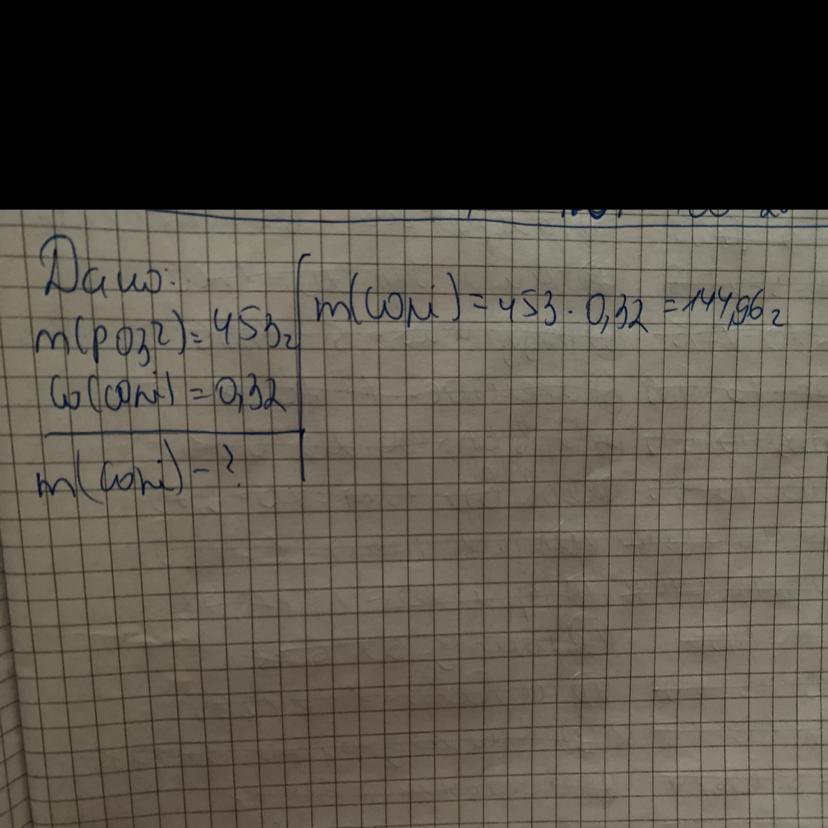 Дано:
m(розг) = 453г
ω(солі) = 0,32
m(солі) - ?
m(солі) = 453 · 0,32 = 144,96 г